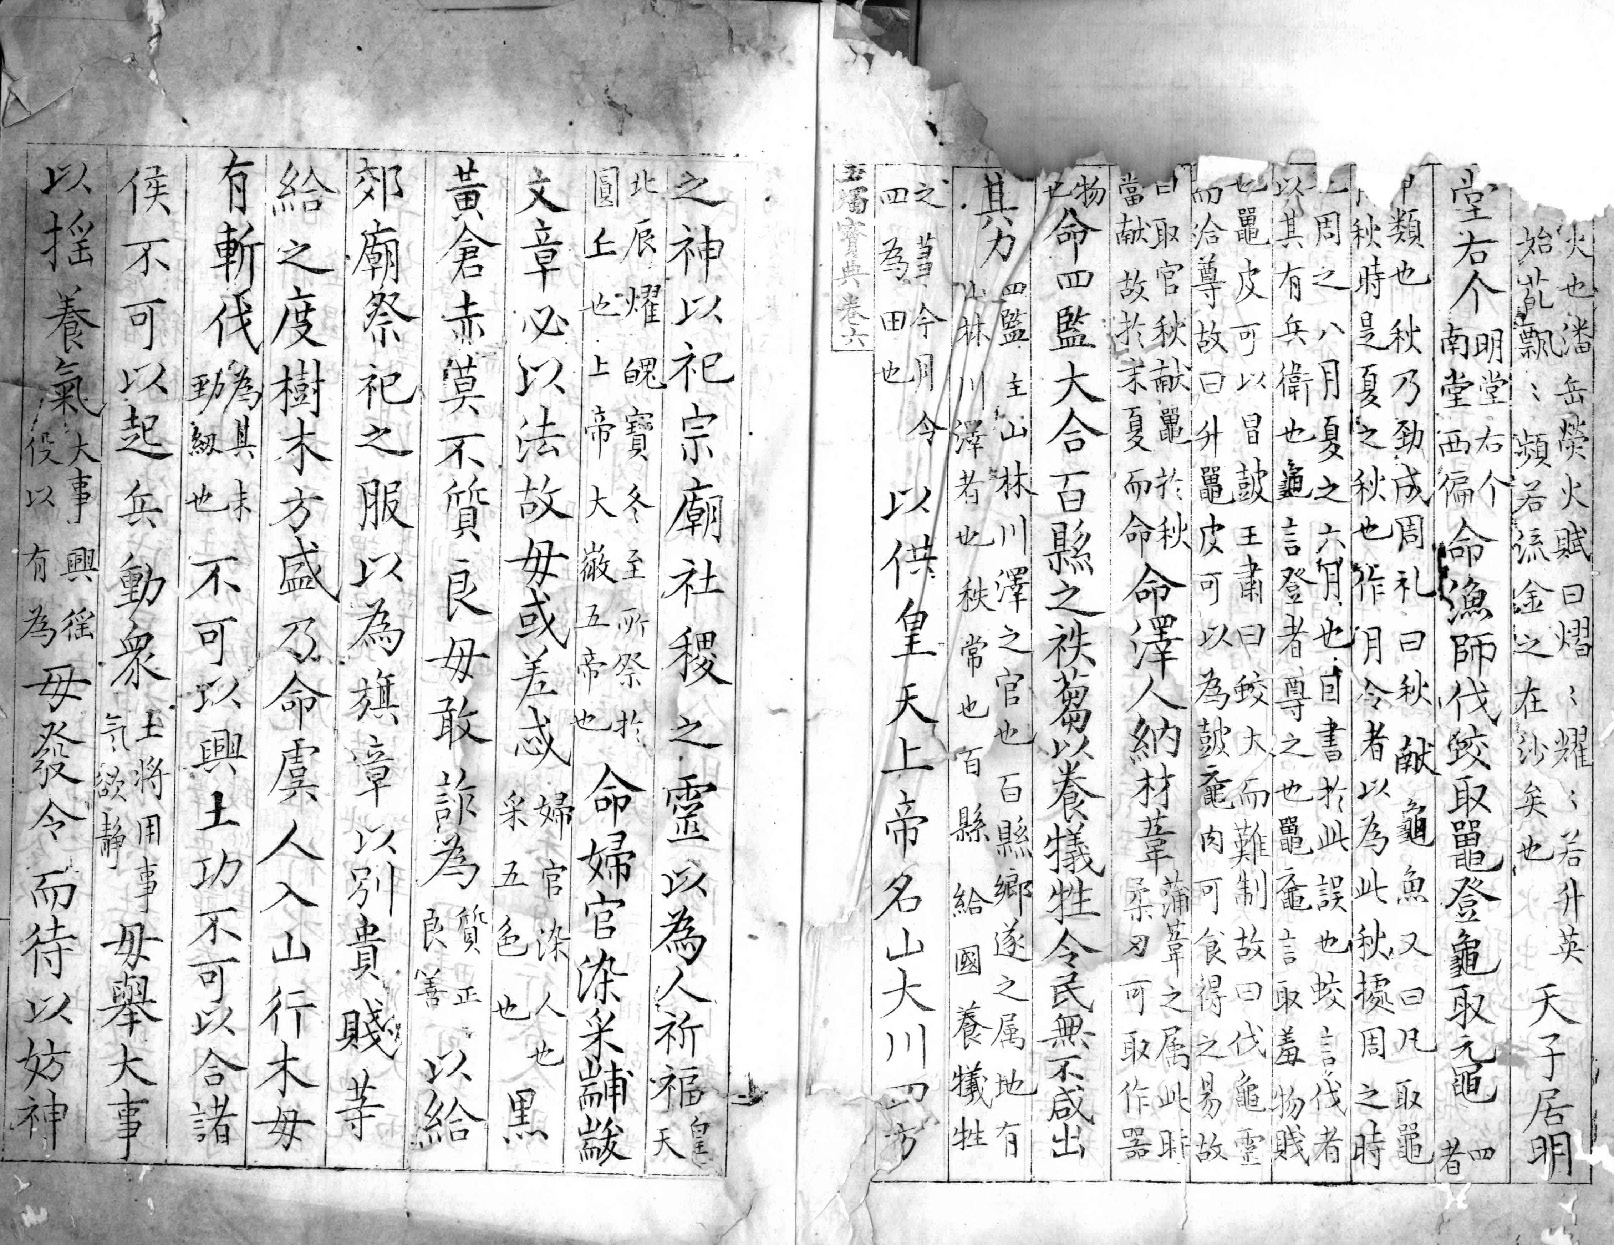 火也潘岳熒火賦曰熠〻耀〻若升英
始乱飄〻頻若流金之在沙矣也
天子居明
堂右个
明堂右个
南堂西偏
命漁師伐蛟取鼉登龜取元黿
四
者
類也秋乃勁成周礼曰秋献龜魚又曰凡取鼉
秋時是夏之秋也作月令者以為此秋據周之時
周之八月夏之六月也因書於此誤也蛟言伐者
以其有兵衛也龜言登者尊之也鼉黿言取羞物賤
也鼉皮可以冒皷王肅曰蛟大而難制故曰伐龜霊
而給尊故曰升鼉皮可以為皷黿肉可食得之易故
曰取官秋献鼉於秋
當献故於末夏而命
命澤人納材葦
蒲葦之属此時
柔刃可取作器
物
也
命四監大合百縣之袟蒭以養犠牲令民無不咸出
其力
四監主山林川澤之官也百縣鄉遂之属地有
山林川澤者也秩常也百縣給國養犠牲
之蒭今月令
四為田也
以供皇天上帝名山大川四方
玉燭寶典卷六
之神以祀宗廟社稷之靈以為人祈福
皇
天
北辰燿魄寶冬至所祭於
圓丘也上帝大微五帝也
命婦官染采黼黻
文章必以法故毋或差忒
婦官染人也
采五色也
黒
黃倉赤莫不質良毋敢詐為
質正
良善
以給
郊廟祭祀之服以為旗章以別貴賤等
給之度樹木方盛乃命虞人入山行木毋
有斬伐
為其未
勁紉也
不可以興土功不可以合諸
侯不可以起兵動衆
土将用事
氣欲静
毋舉大事
以揺養氣
大事興徭
役以有為
毋發令而待以妨神